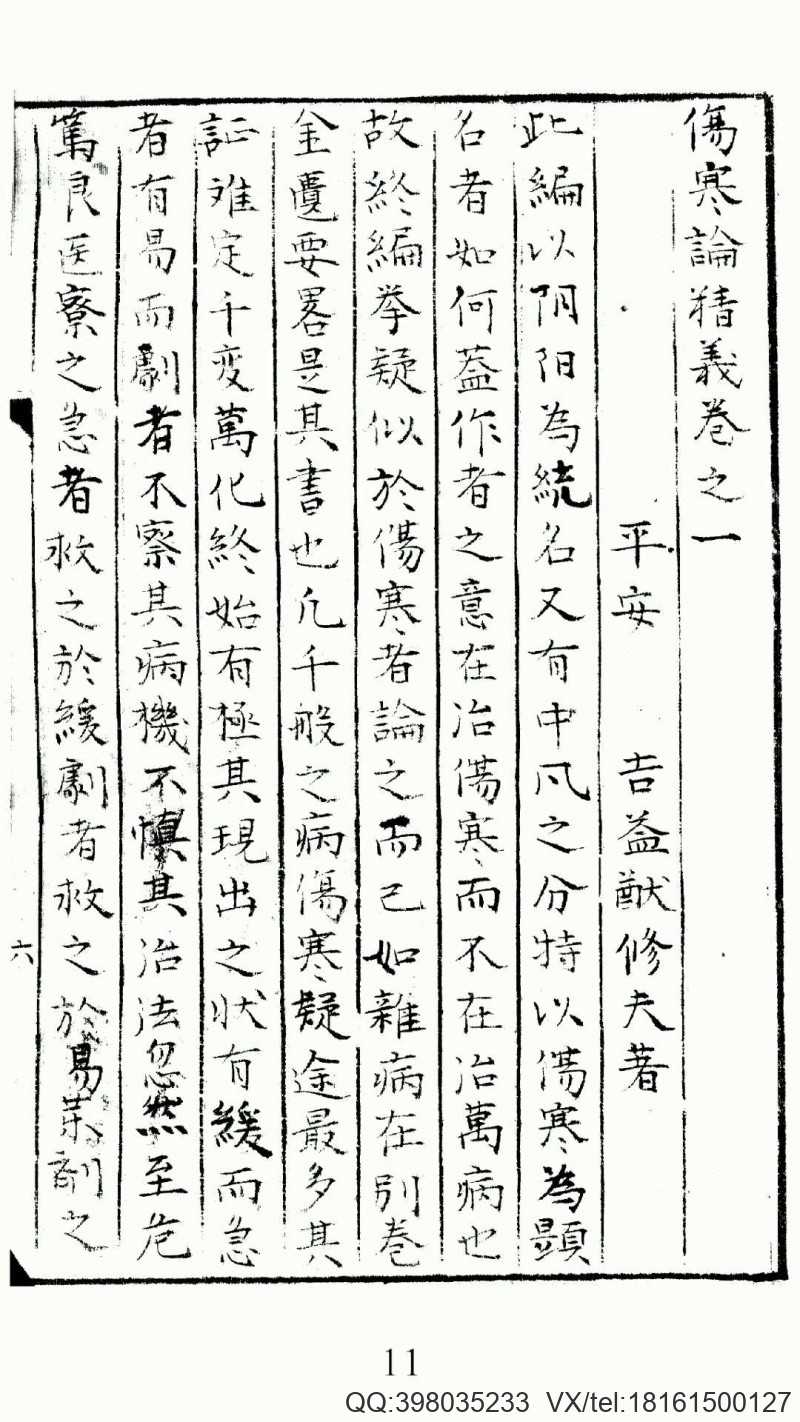 傷寒論精義卷之一
平安 吉益猷修夫著
此編以阴阳為統名又有中風之分特以傷寒為顕
名者如何葢作者之意在治傷寒而不在治萬病也
故終編挙疑似於傷寒者論之而已如雜病在別卷
金匱要畧是其書也凢千般之病傷寒疑途最多其
証难定千变萬化終始有極其現出之状有緩而急
者有易而劇者不察其病機不慎其治法忽然至危
篤良医寮之急者救之於緩劇者救之於易茉剤之
六
11
QQ:398035233 VX/tel:18161500127